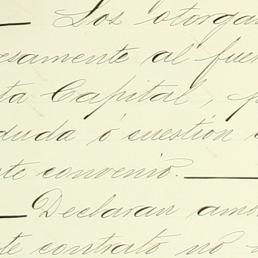 — Los otorgan
esamente al fuer
ta Capital, p
duda ó cuestión
te convenio. —
— Declaran am
te contrato no